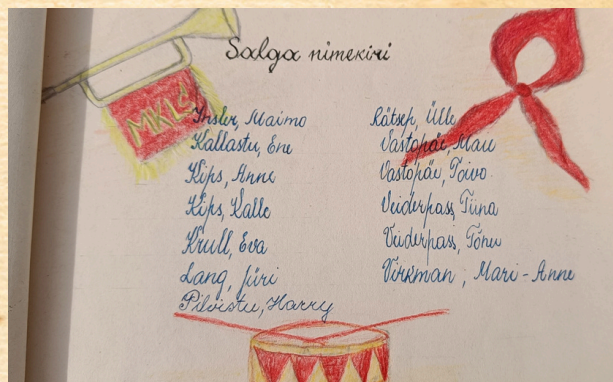 Salga nimekiri
MKLS
Insler, Maimo
Kallastu, Ene
Kips, Anne
Kips, Kalle
Krull, Eva
Lang, Jüri
Pilvistu, Harry
Rätsep, Ülle
Vastopäe, Mare
Vastopäe, Toivo
Veiderpass, Tiina
Veiderpass, Tõnu
Virkman, Mari-Anne